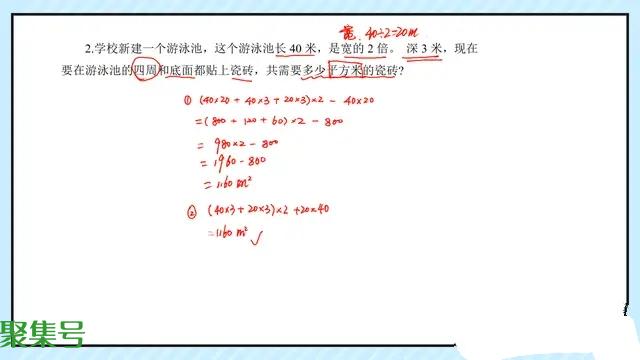 宽: 40÷2=20m
2.学校新建一个游泳池，这个游泳池长 40 米，是宽的 2 倍。 深 3 米，现在
要在游泳池的四周和底面都贴上瓷砖，共需要多少平方米的瓷砖？
① (40×20 + 40×3 + 20×3)×2 - 40×20
=(800 + 120 + 60)×2 - 800
= 980×2 - 800
= 1960 - 800
= 1160 m²
② (40×3 + 20×3)×2 + 20×40
=1160 m² ✓
聚集号